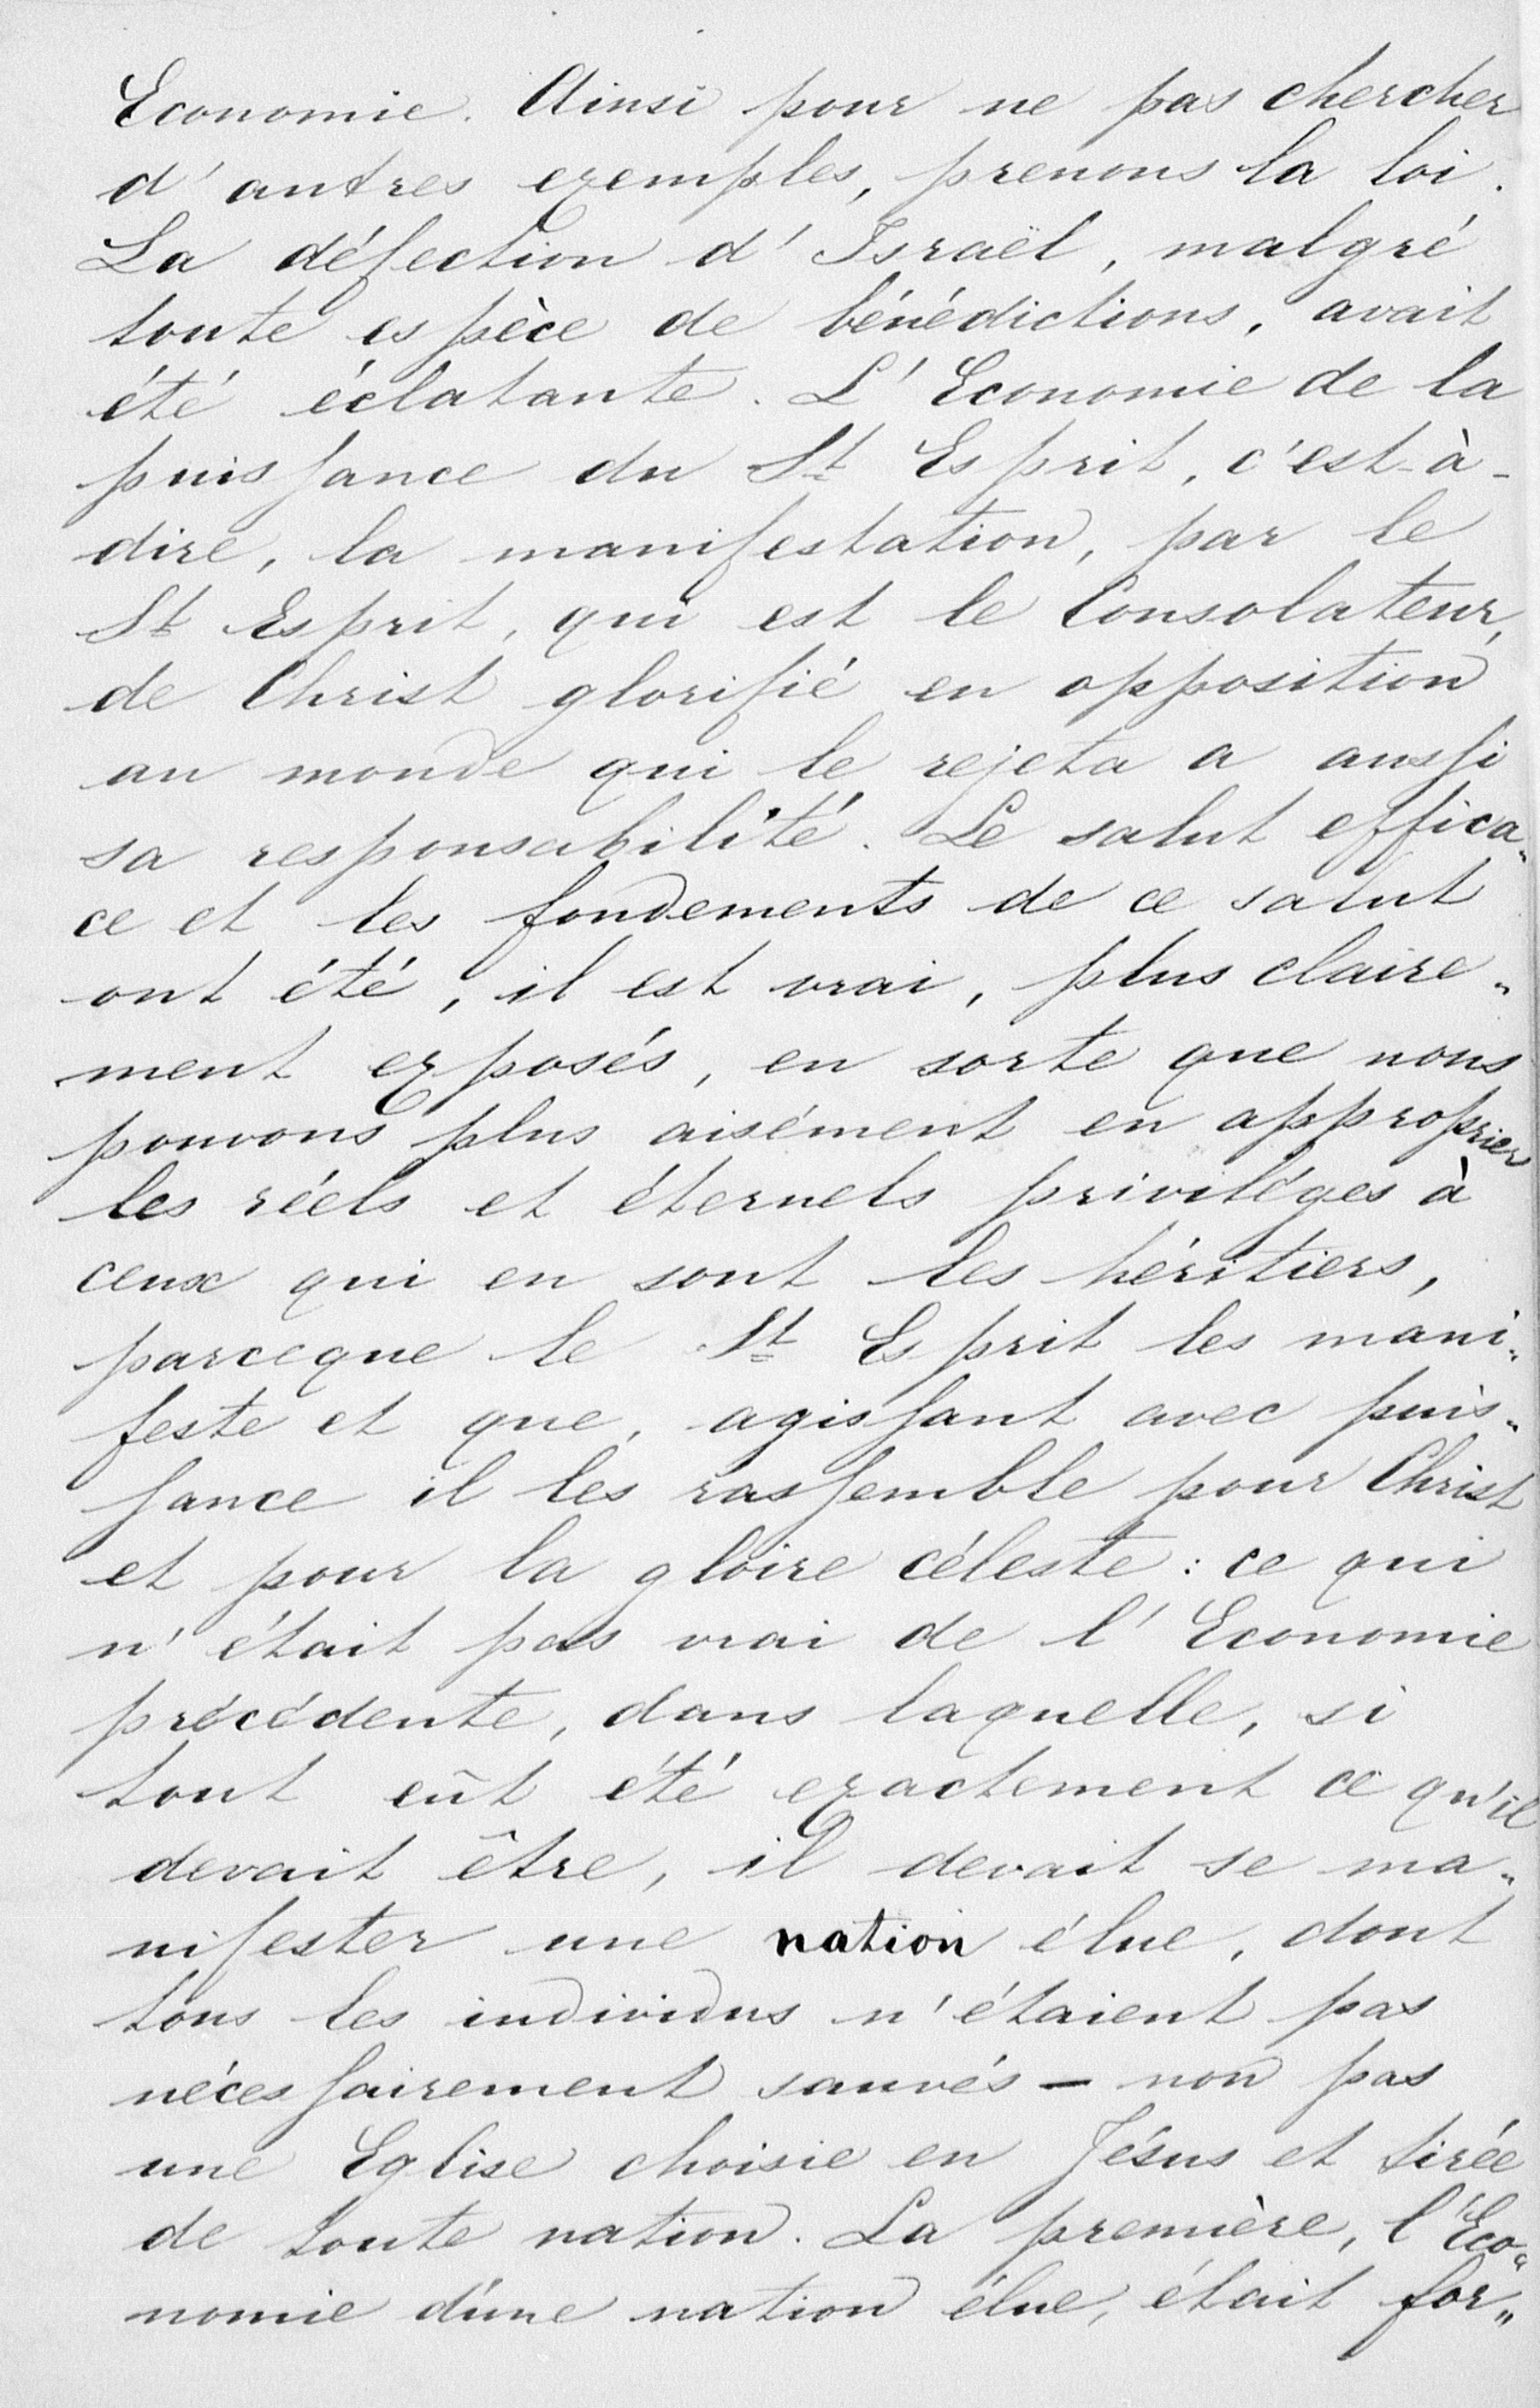 Economie. Ainsi pour ne pas chercher
d'autres exemples, prenons la loi.
La défection d'Israël, malgré
toute espèce de bénédictions, avait
été éclatante. L'Economie de la
puissance du St Esprit, c'est-à-
dire, la manifestation, par le
St Esprit, qui est le Consolateur,
de Christ glorifié en opposition
au monde qui le rejeta a aussi
sa responsabilité. Le salut effica„
ce et les fondements de ce salut
ont été, il est vrai, plus claire„
ment exposés, en sorte que nous
pouvons plus aisément en approprier
les réels et éternels privilèges à
ceux qui en sont les héritiers,
parceque le St Esprit les mani„
feste et que, agissant avec puis„
sance il les rassemble pour Christ
et pour la gloire céleste : ce qui
n'était pas vrai de l'Economie
précédente, dans laquelle, si
tout eût été exactement ce qu'il
devait être, il devait se ma„
nifester une nation élue, dont
tous les individus n'étaient pas
nécessairement sauvés — non pas
une Eglise choisie en Jésus et tirée
de toute nation. La première, l'Eco„
nomie d'une nation élue, était for„